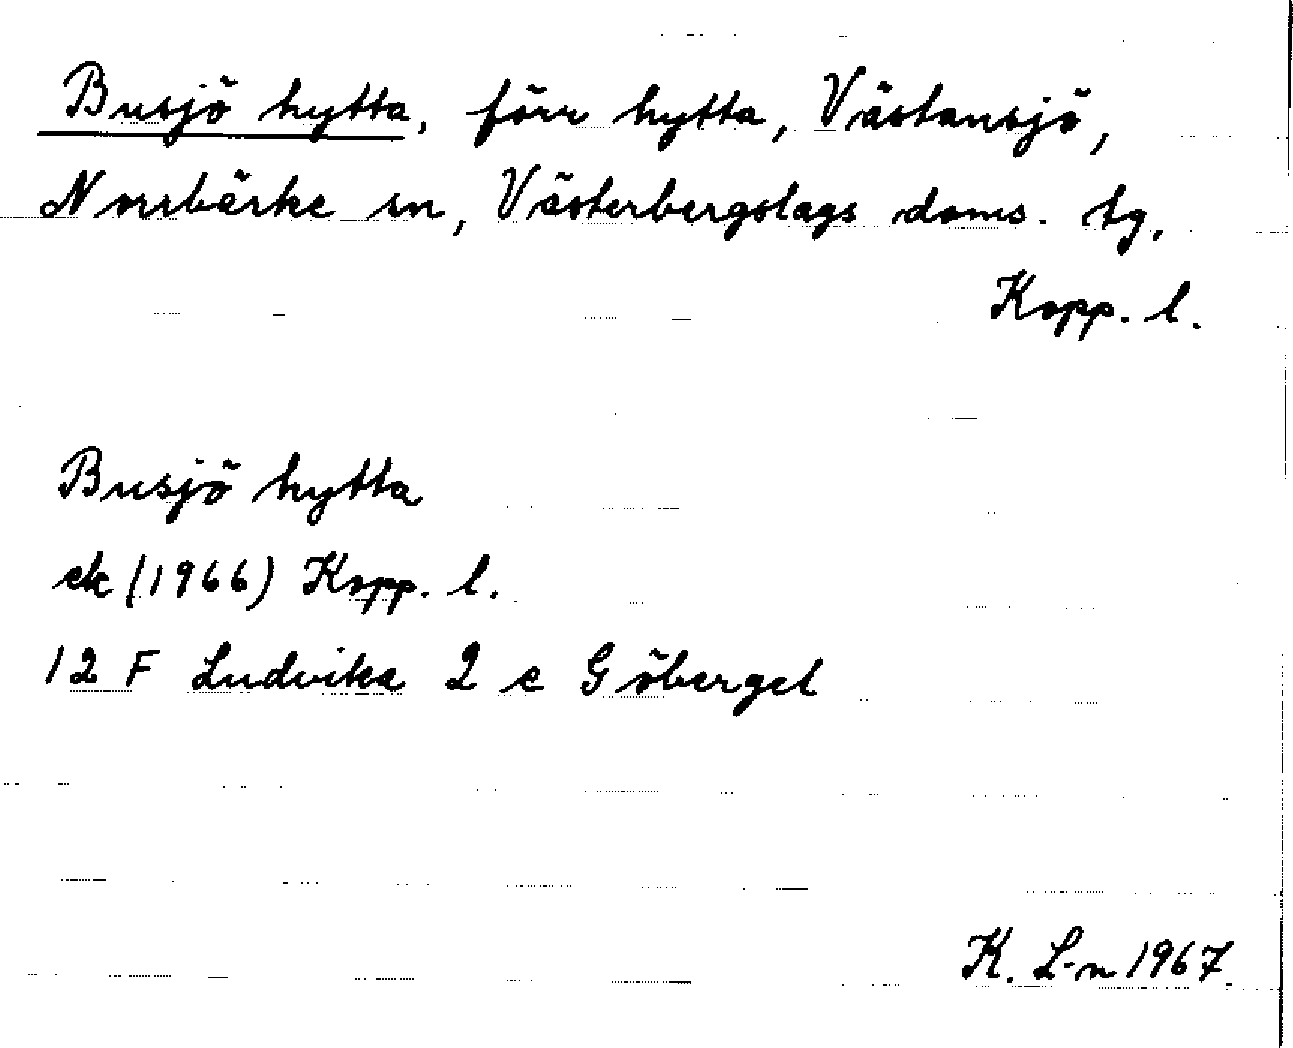 Busjö hytta, förr hytta, Västansjö,
Norrbärke sn, Västerbergslags doms. tg,
Kopp. l.
Busjö hytta
ek (1966) Kopp. l.
12 F Ludvika 2 e Göberget
K. L-n 1967.